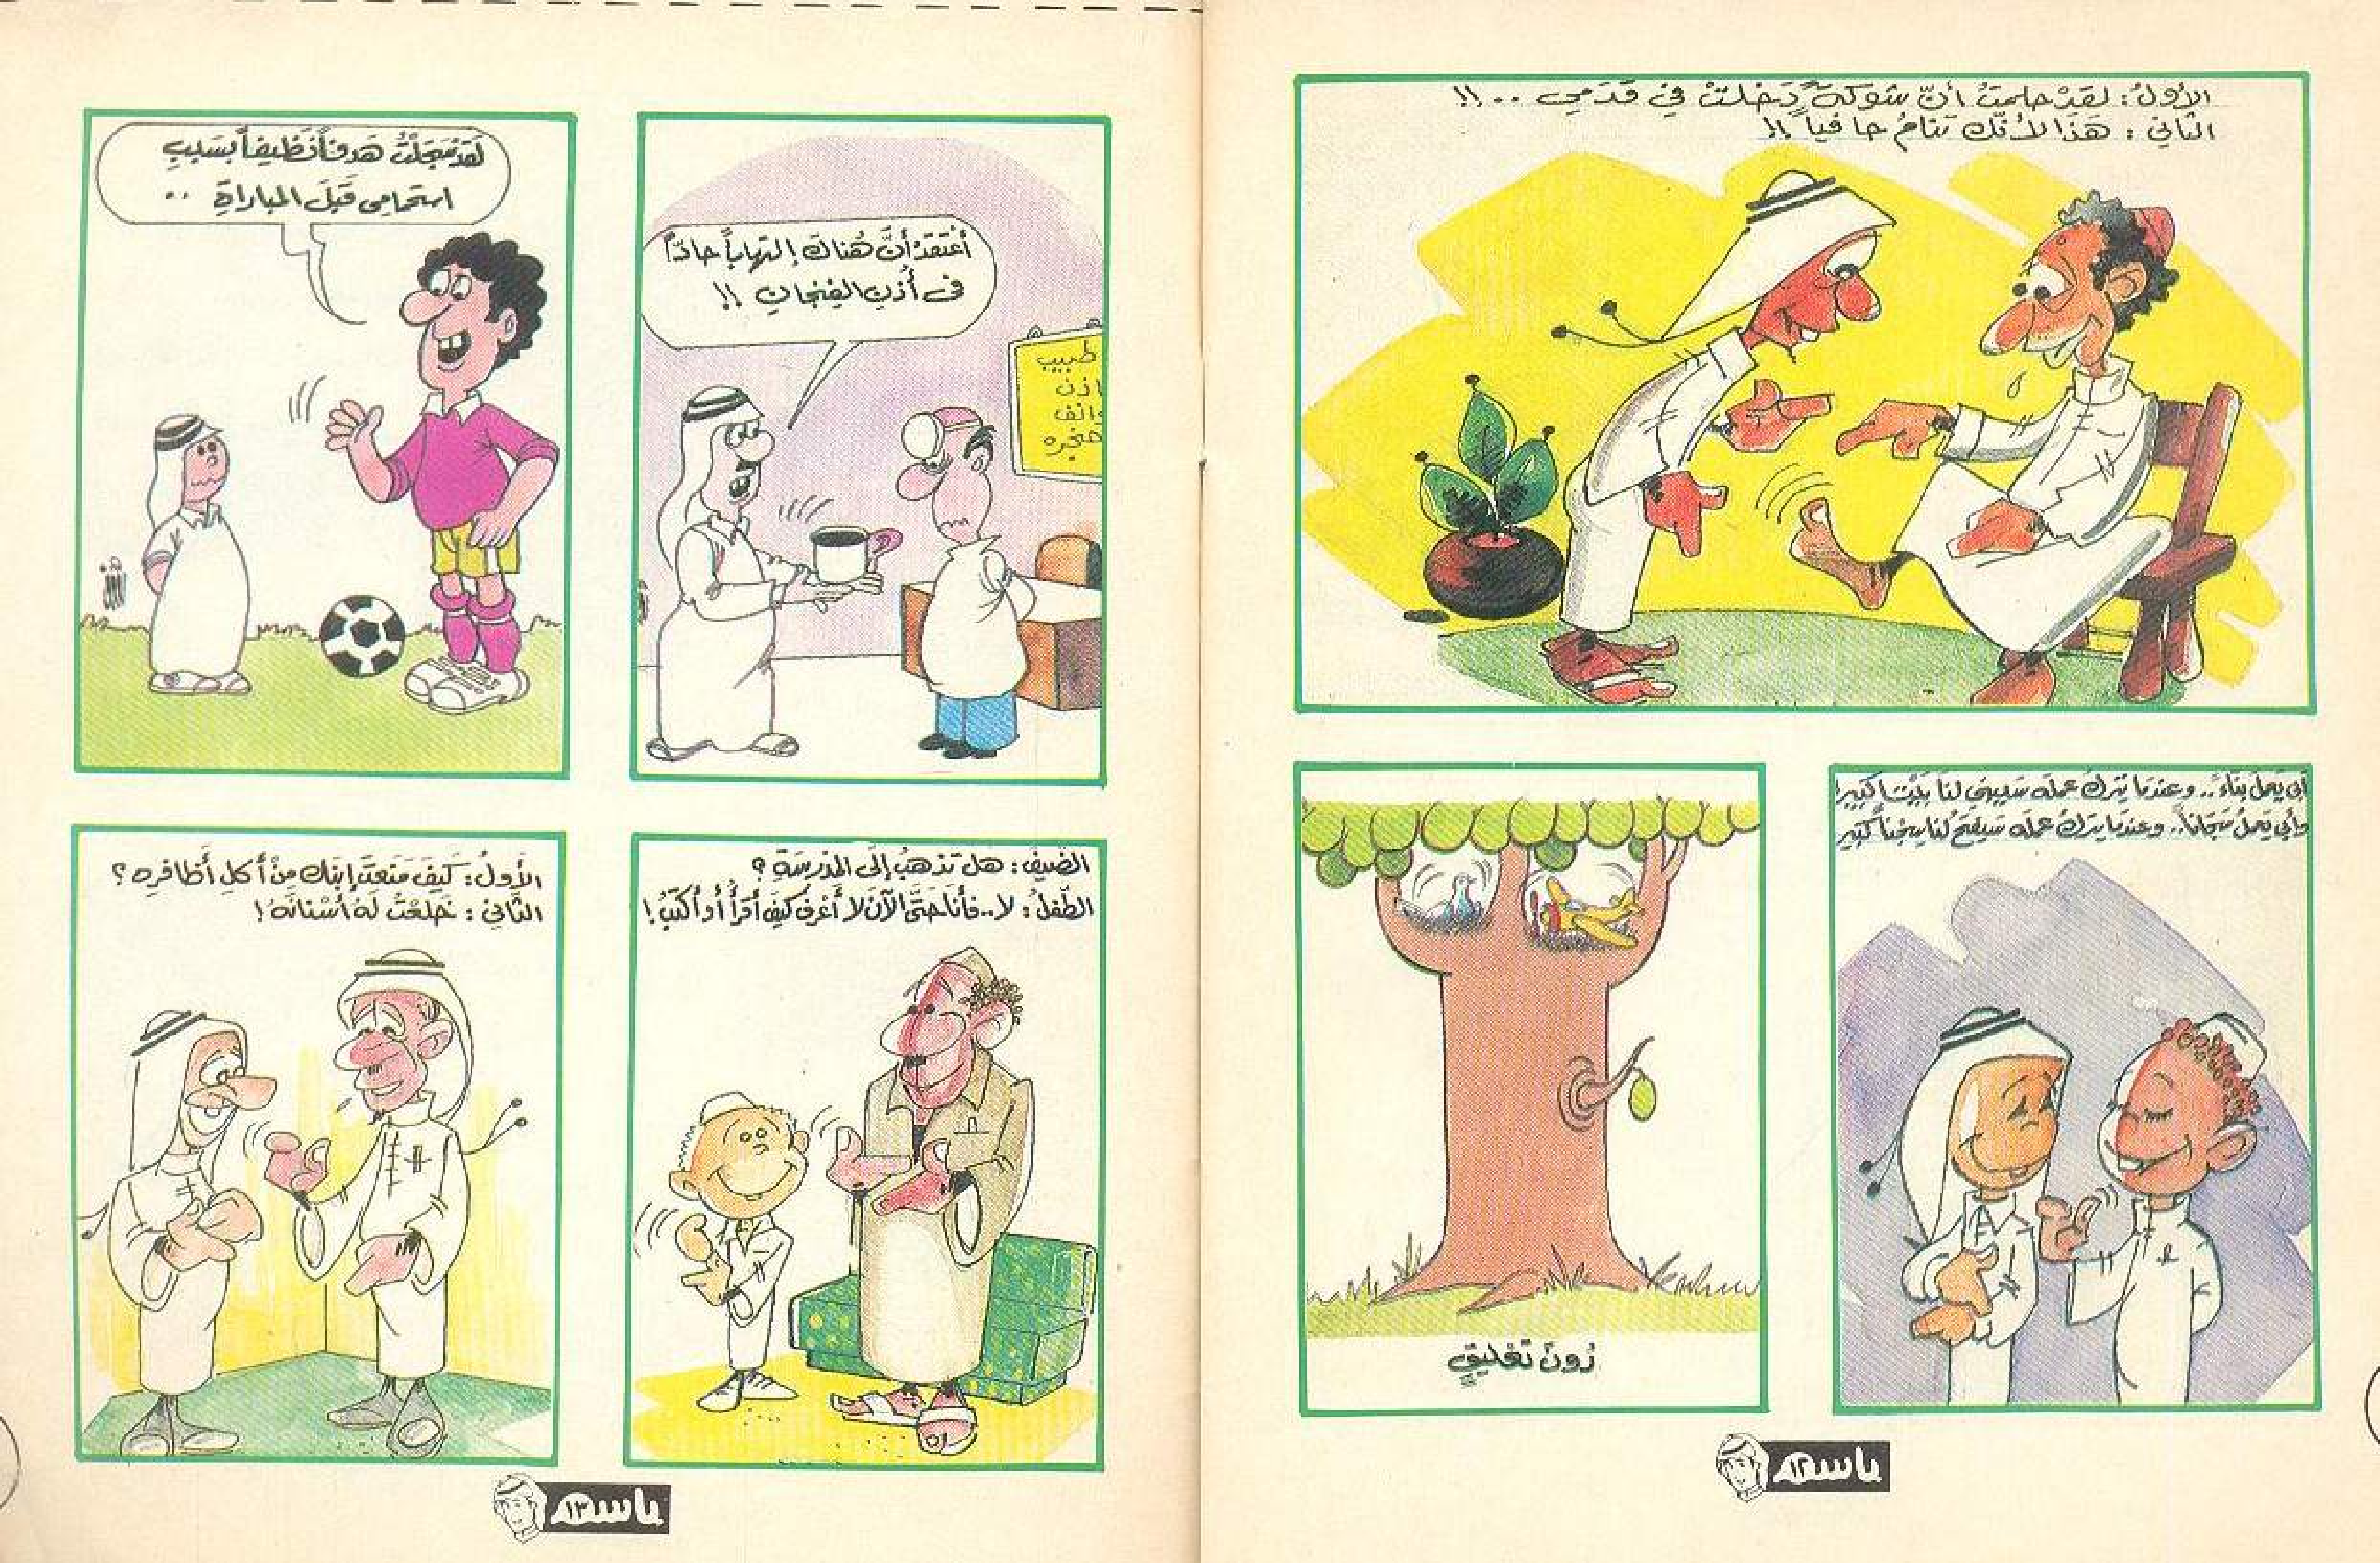 الأولُ: لقدْ حلمتُ أنّ شوكةً دَخلتْ في قَدَمي ..!!
الثاني: هَذا لأنّك تنامُ حافياً !!
أبي يَعملُ بنّاءً.. وعندَما يَتركُ عملَه سَيبني لنَا بَيْتاً كَبيراً
وأبي يعملُ سَجّاناً.. وعندَما يتركُ عملَه سَيفتحُ لنَا سِجْناً كَبير
دُونَ تَعْليقٍ
باسم
١٢
أَعْتَقدْ أنَّ هُناكَ إلتهاباً حادّاً
في أُذنِ الفِنجانِ !!
طبيب
اذن
وانف
حنجره
لَقدْ سَجلْتُ هَدفاً نَظيفاً بسَببِ
استحمامي قَبلَ المباراةِ ..
الضيفُ: هل تَذهبُ إلَى المَدْرسَةِ ؟
الطّفلُ: لا.. فأنَا حَتّى الآنَ لا أَعْرفُ كيفَ أقرأُ أو أكتبُ !
الأولُ: كَيفَ مَنعتَ إبنَك مِنْ أكلِ أَظافرِه ؟
الثّاني: خَلعْتُ لَهُ أسْنانَهُ !
باسم
١٣